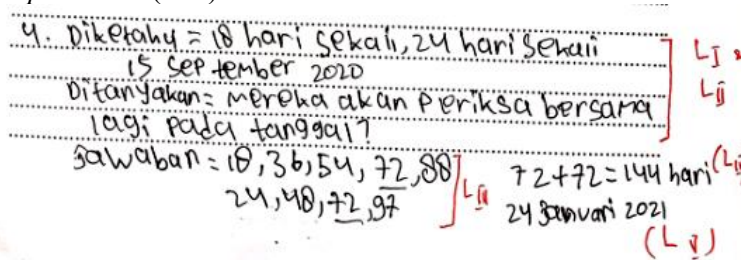 4. Diketahu = 18 hari sekali, 24 hari sekali
15 september 2020
Ditanyakan = mereka akan periksa bersama
lagi pada tanggal?
Jawaban = 18, 36, 54, 72, 88
24, 48, 72, 97
72+72 = 144 hari
24 Januari 2021